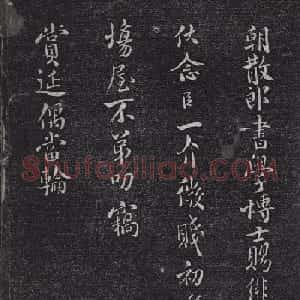 朝散郎書學博士賜緋
伏念臣一介微賤初
塲屋不第叨竊
賞延偶當輪
Shufaziliao.COM